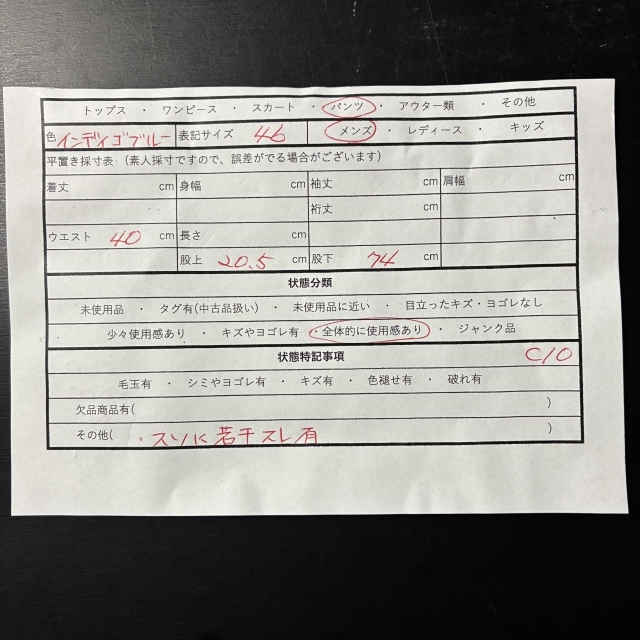 トップス ・ ワンピース ・ スカート ・ パンツ ・ アウター類 ・ その他
色 インディゴブルー 表記サイズ 46 メンズ ・ レディース ・ キッズ
平置き採寸表 (素人採寸ですので、誤差がでる場合がございます)
着丈 cm 身幅 cm 袖丈 cm 肩幅 cm
裄丈 cm
ウエスト 40 cm 長さ cm
股上 20.5 cm 股下 74 cm
状態分類
未使用品 ・ タグ有(中古品扱い) ・ 未使用品に近い ・ 目立ったキズ・ヨゴレなし
少々使用感あり ・ キズやヨゴレ有 ・全体的に使用感あり ・ ジャンク品
状態特記事項 C10
毛玉有 ・ シミやヨゴレ有 ・ キズ有 ・ 色褪せ有 ・ 破れ有
欠品商品有( )
その他( ・スソに若干スレ有 )